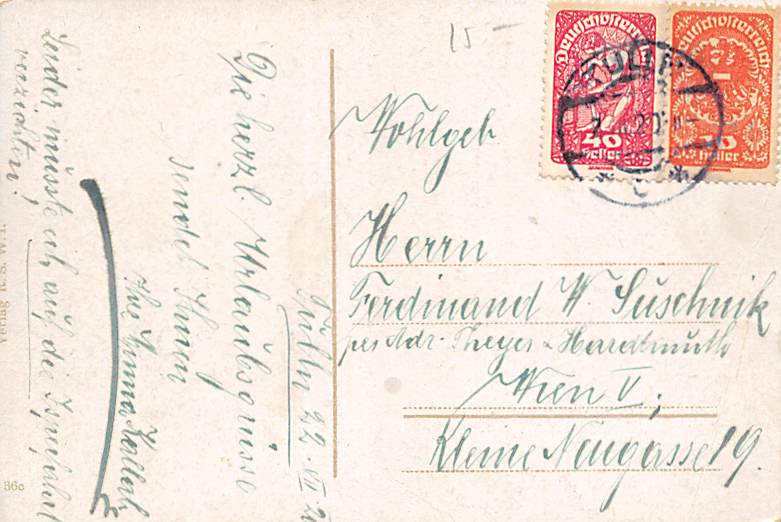 15 -
Deutschösterreich
40
Heller
Deutschösterreich
10
Heller
TULLN
Wohlgeb
Herrn
Ferdinand W. Suschnik
per Adr. Theyer & Hardtmuth
Wien V,
Kleine Neugasse 19.
Tulln 22. VII. 2
Die herzl. Urlaubsgrüsse
sendet Ihnen
Ihre Emma
Leider musste ich auf die
verzichten!
Verlag R. S. W. I.
36c